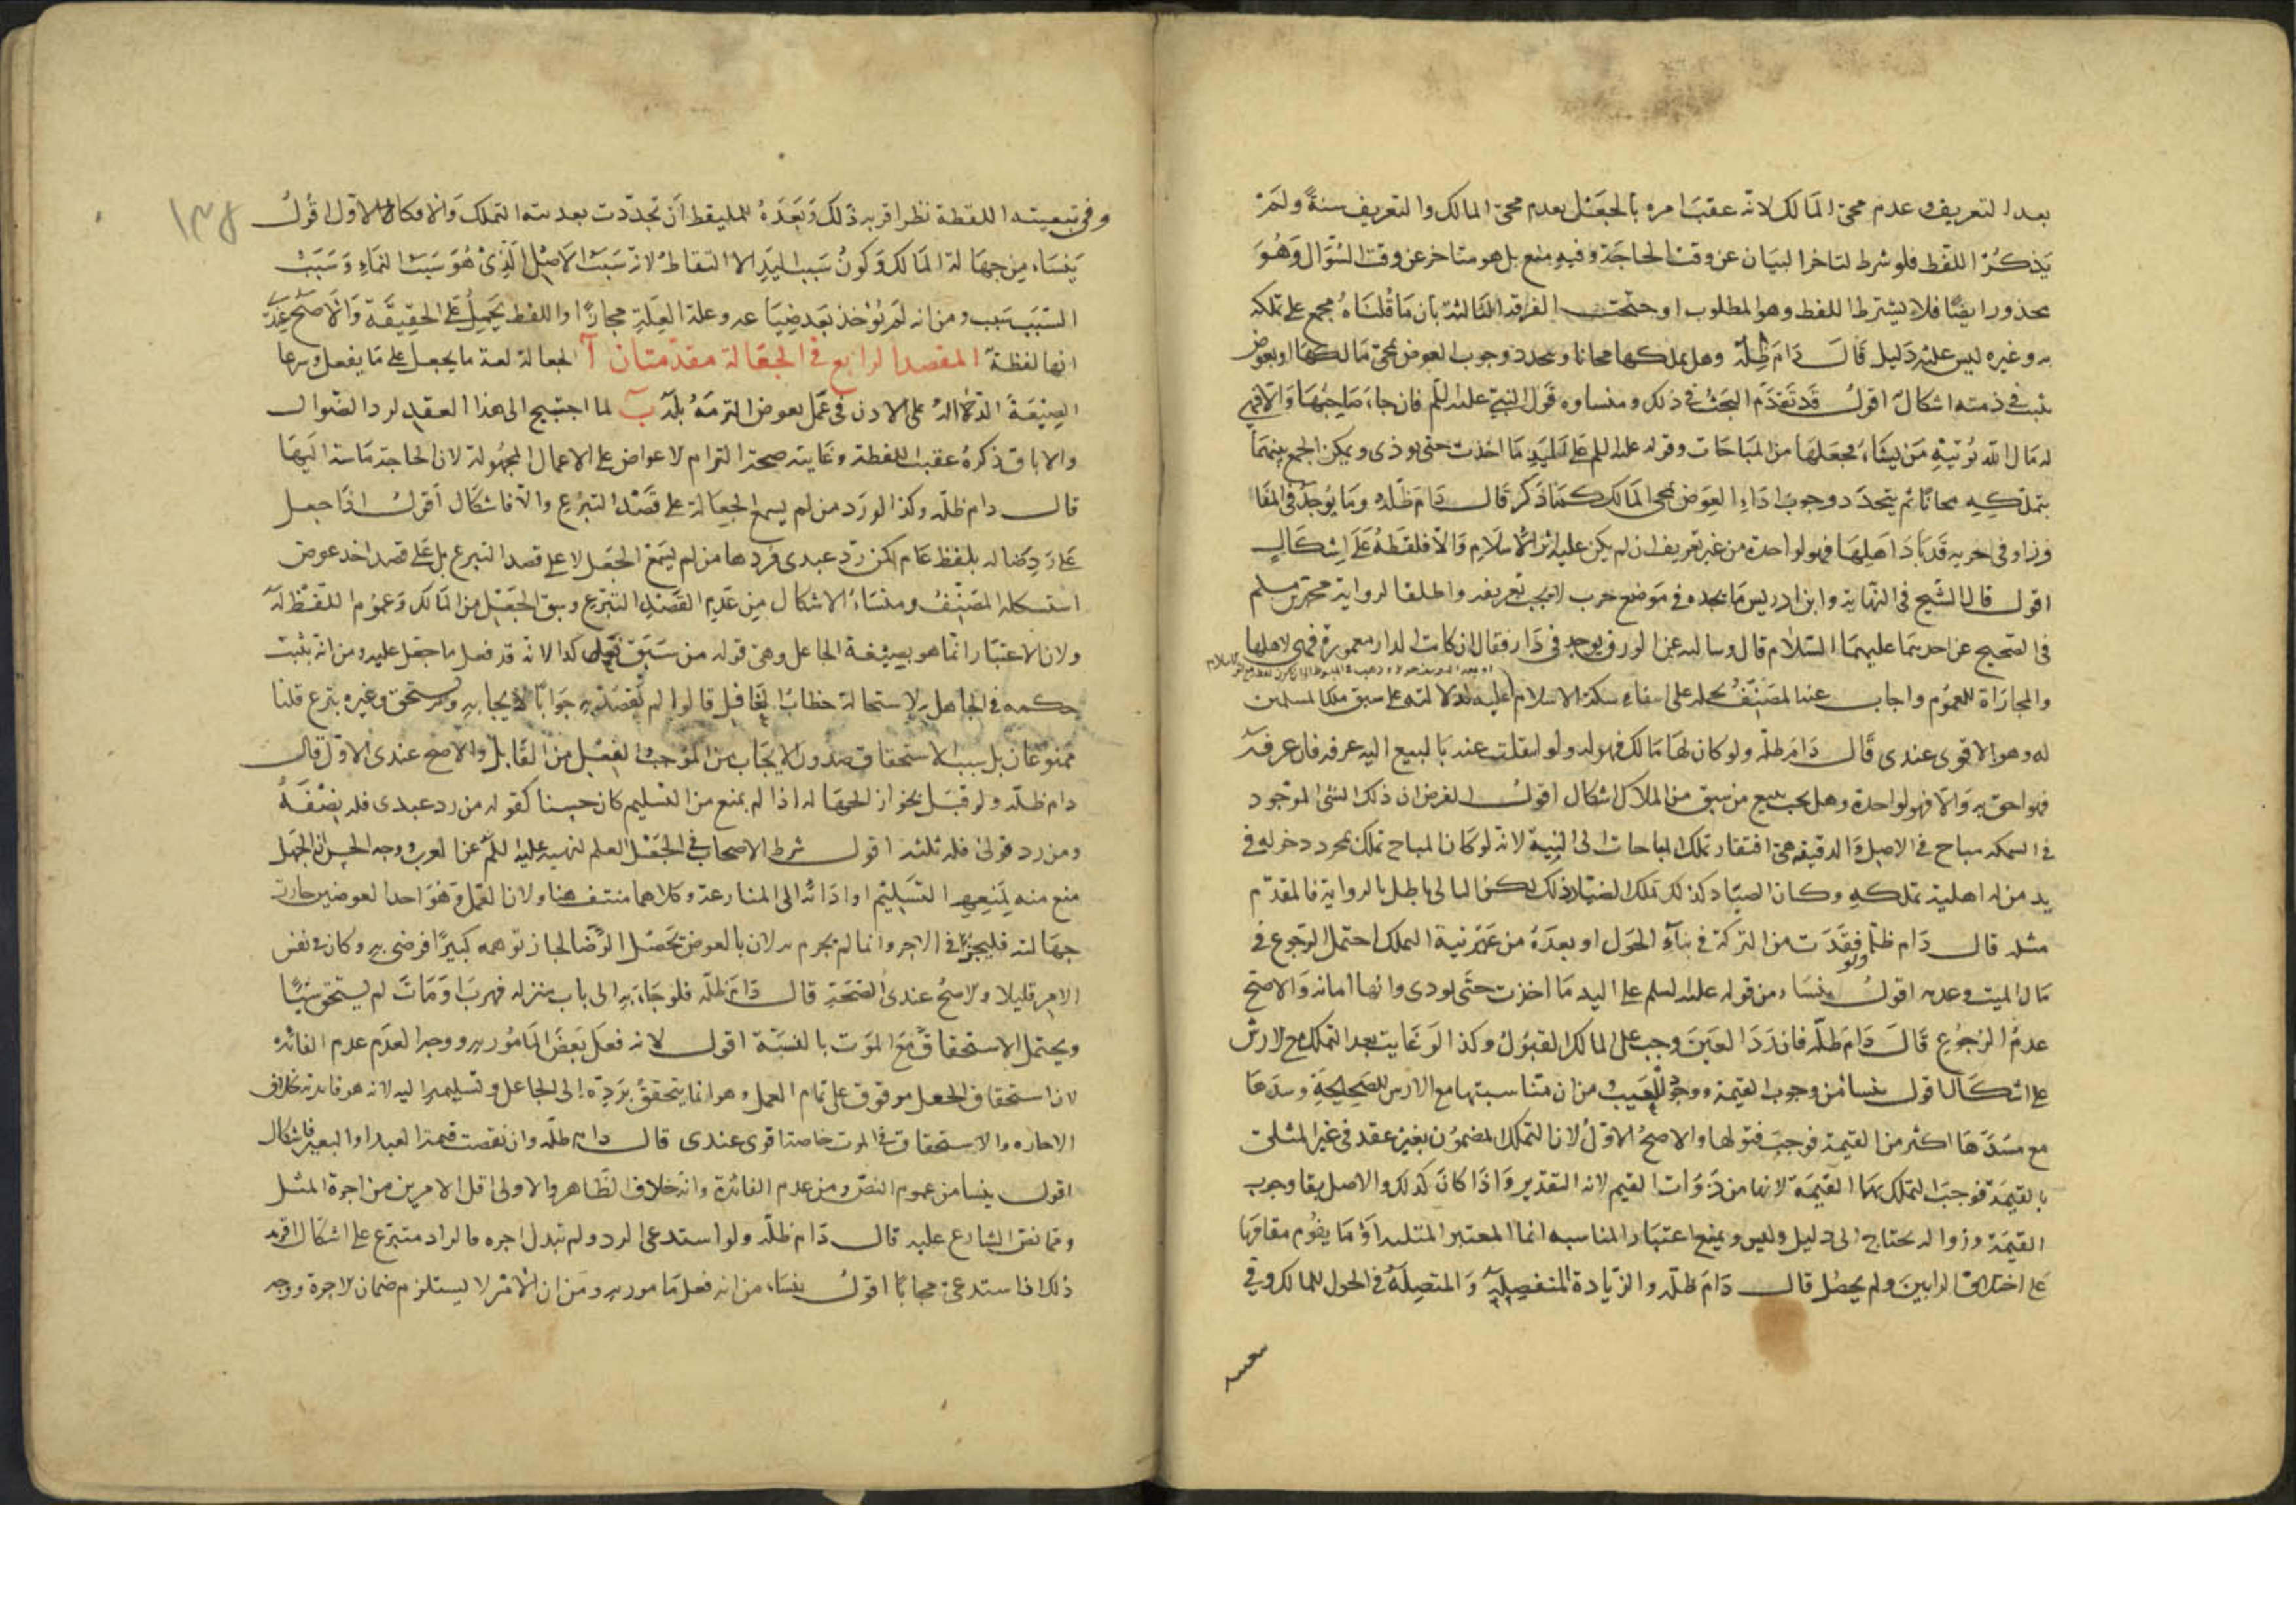 بعد التعريف وعدم مجئ المالك لانه عقب امره بالجعل بعدم مجئ المالك والتعريف سنة ولم
يذكر اللفظ فلو شرط لتاخر البيان عن وقت الحاجة وفيه منع بل هو متاخر عن وقت السؤال وهو
محذور ايضا فلا يشترط اللفظ وهو المطلوب احتجت الفرقة الثالثة بان ما قلناه مجمع على تملكه
به وغيره ليس عليه دليل قال دام ظله وهل يملكها مجانا ويتجدد وجوب العوض بمجئ مالكها او بعوض
يثبت في ذمته اشكال اقول قد تقدم البحث في ذلك ومنشاوه قول النبي عليه السلم فان جاء صاحبها والا فهي
له مال الله يؤتيه من يشاء فجعلها من المباحات وقوله عليه السلم على اليد ما اخذت حتى تودى ويمكن الجمع بينهما
بتملكه مجانا ثم يتجدد وجوب اداء العوض بمجئ المالك كما ذكر قال دام ظله وما يوجد في المفا
وز او في خربة قد باد اهلها فهو لواجده من غير تعريف ان لم يكن عليه اثر الاسلام والا فلقطة على اشكال
اقول قال الشيخ في النهاية وابن ادريس ما يجده في موضع خرب لا يجب تعريفه واطلقا لرواية محمد بن مسلم
في الصحيح عن احدهما عليهما السلام قال وسالته عن الورق يوجد في دار فقال ان كانت الدار معمورة فهي لاهلها
والمجازاة للعموم واجاب عنه المصنف بحمله على انتفاء سكة الاسلام عليه لدلالته على سبق ملك المسلمين
له وهو الاقوى عندي قال دام ظله ولو كان لها مالك فهو له ولو انتقلت عنه بالبيع اليه عرفه فان عرفه
فهو احق به والا فهو لواجده وهل يجب تتبع من سبق من الملاك اشكال اقول الفرض ان ذلك الشئ الموجود
في السمكة مباح في الاصل والدقيقة هي افتقار تملك المباحات الى النية لانه لو كان المباح تملك بمجرد دخوله في
يد من له اهلية تملكه وكان الصياد كذلك لملك الصياد ذلك لكن التالي باطل بالرواية فالمقدم
مثله قال دام ظله ولو فقدت من التركة في اثناء الحول او بعده من غير نية التملك احتمل الرجوع في
مال الميت وعدمه اقول ينشاء من قوله عليه السلم على اليد ما اخذت حتى تودى وانها امانة والاصح
عدم الرجوع قال دام ظله فان رد العين وجب على المالك القبول وكذا لو تعابت بعد التملك مع الارش
على اشكال اقول ينشا من وجوب القيمة ووجود العيب ومن ان مناسبتها مع الارش للصحيحة وسدها
مع سدها اكثر من القيمة فوجب قبولها والاصح الاول لان التملك المضمون بغير عقد في غير المثلي
بالقيمة فوجب التملك بهما القيمة لانها من ذوات القيم لانه التقدير واذا كان كذلك والاصل بقا وجوب
القيمة وزواله يحتاج الى دليل وليس ويمنع اعتبار المناسبة انما المعتبر المثلية او ما يقوم مقامها
على اختلاف الرايين ولم يحصل قال دام ظله والزيادة المنفصلة والمتصلة في الحول للمالك وفي
وفي تبعيته اللقطة نظر اقربه ذلك وبعده للملتقط ان تجددت بعد نية التملك والا فكالاول اقول
ينشاء من جهالة المالك وكون سبب اليد الالتقاط لانه سبب الاصل الذي هو سبب النماء وسبب
السبب سبب ومن انه لم يوخذ بعد ضياعه وعلة العلة مجازا واللفظ يحمل على الحقيقة والاصح عندي
انها لقطة المقصد الرابع في الجعالة مقدمتان آ الجعالة لغة ما يجعل على ما يفعل وشرعا
الصيغة الدالة على الاذن في عمل بعوض التزمه بلفظ ب لما احتيج الى هذا العقد لرد الضوال
والاباق ذكره عقيب اللقطة وغايته صحة التزام الاعواض على الاعمال المجهولة لان الحاجة ماسة اليها
قال دام ظله وكذا لو رد من لم يسمع الجعالة على قصد التبرع والا فاشكال اقول اذا جعل
على رد ضالة بلفظ عام كمن رد عبدي فردها من لم يسمع الجعل لا على قصد التبرع بل على قصد اخذ عوض
استشكله المصنف ومنشاء الاشكال من عدم القصد التبرع وسبق الجعل من المالك وعموم اللفظ له
ولان الاعتبار انما هو بصيغة الجاعل وهي قوله من سبق فعل كذا لانه قد فعل ما جعل عليه ومن انه يثبت
حكمه في الجاهل لاستحالة خطاب الغافل قالوا لم يقصد به جوابا لايجابه ولم يستحق وغيره بتبرع قلنا
ممنوعان بل سبب الاستحقاق صدور الايجاب من الموجب والفعل من القابل والاصح عندي الاول قال
دام ظله ولو قيل بجواز الجهالة اذا لم يمنع من التسليم كان حسنا كقوله من رد عبدي فله نصفه
ومن رد فرسي فله ثلثه اقول شرط الاصحاب في الجعل العلم لنهيه عليه السلم عن الغرر ووجه الحسن ان الجهل
منع منه لمنعه التسليم او ادائه الى المنازعة وكلاهما منتف هنا ولان العمل وهو احد العوضين جازت
جهالته فليجز في الاجر وانما لم يجز به لان بالعوض يحصل الرضا لجاز توهمه كثيرا فرضي به وكان في نفس
الامر قليلا والاصح عندي الصحة قال دام ظله فلو جاء به الى باب منزله فهرب او مات لم يستحق شيئا
ويحتمل الاستحقاق مع الموت بالنسبة اقول لانه فعل بعض المامور به ووجه العدم عدم الفائدة
لان استحقاق الجعل موقوف على تمام العمل وهو انما يتحقق برده الى الجاعل وتسليمه اليه لانه هو فائدته بخلاف
الاجارة والاستحقاق في الموت خاصة اقوى عندي قال دام ظله وان نقصت قيمة العبد او البعير فاشكال
اقول ينشا من عموم النص ومن عدم الفائدة وانه خلاف الظاهر والاولى اقل الامرين من اجرة المثل
ومما نص الشارع عليه قال دام ظله ولو استدعى الرد ولم يبذل اجره فالراد متبرع على اشكال اقربه
ذلك اذا استدعى مجانا اقول ينشاء من انه فعل مامور به ومن ان الامر لا يستلزم ضمان الاجرة ووجه